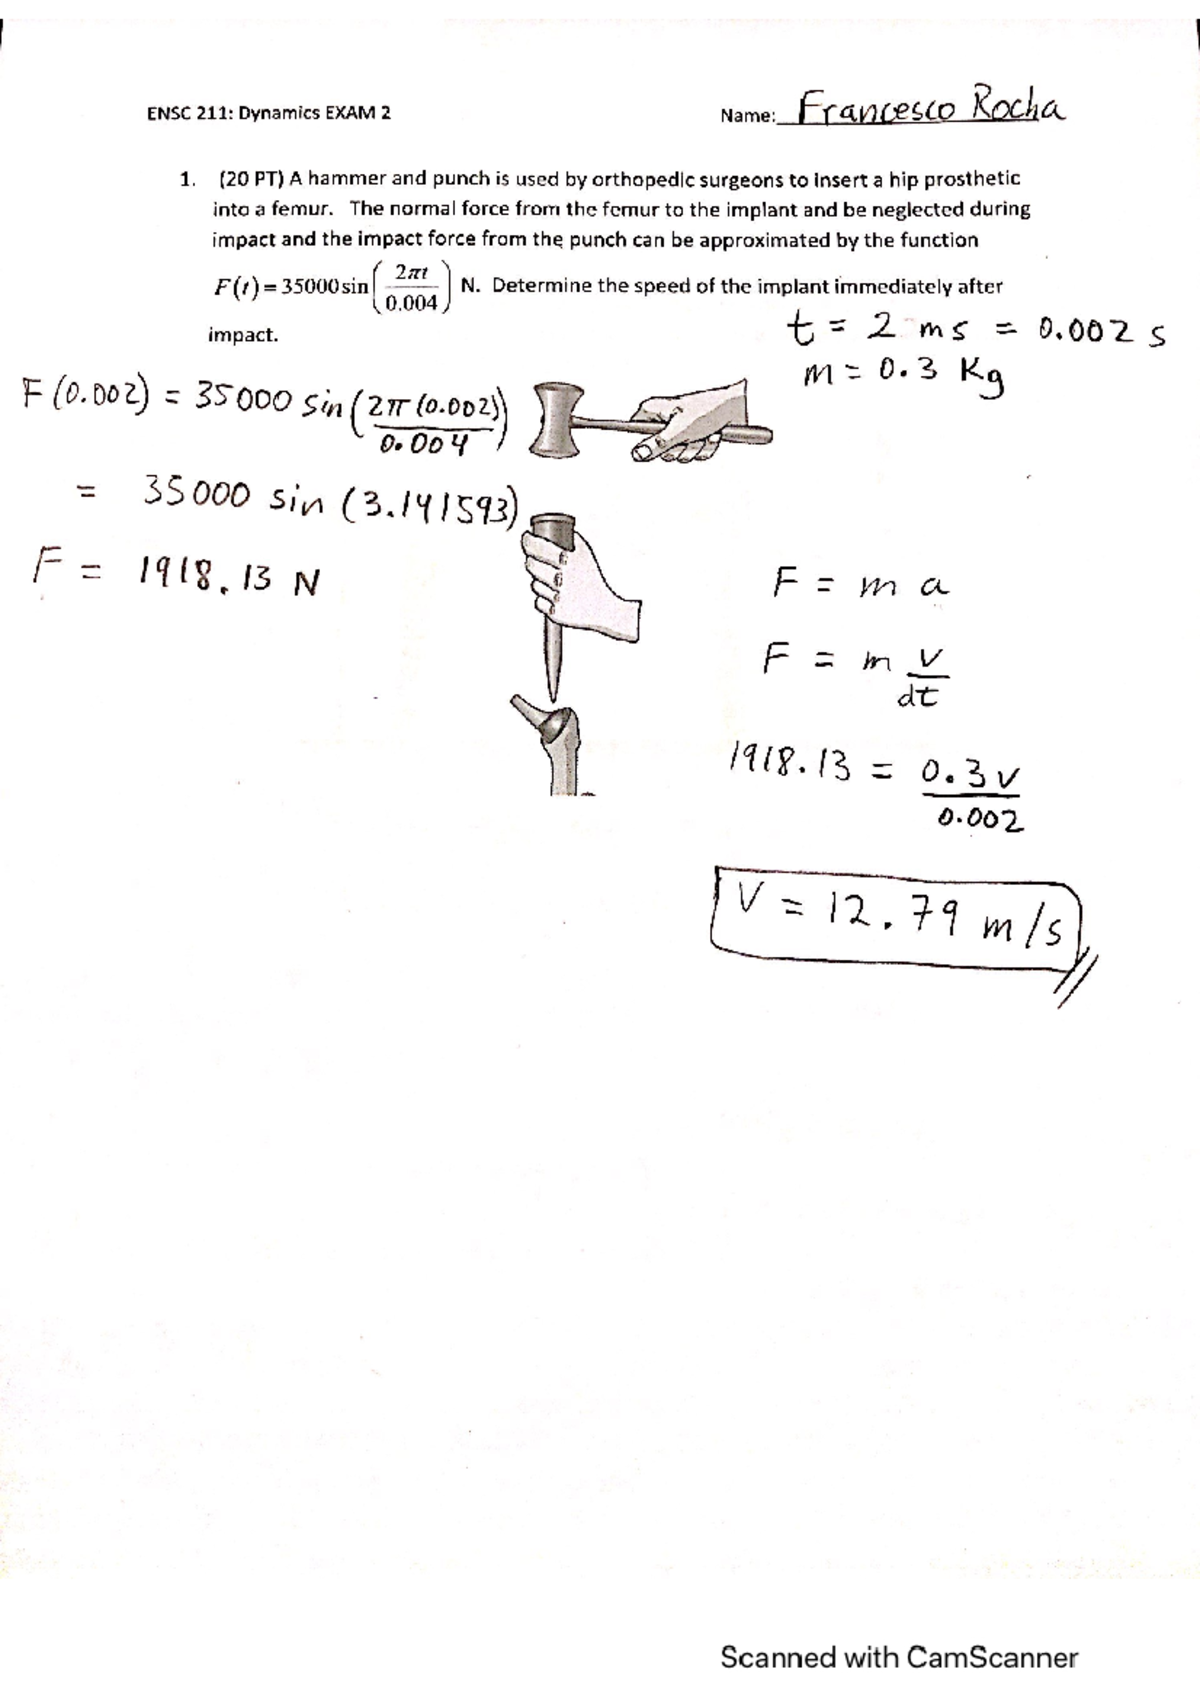 ENSC 211: Dynamics EXAM 2
Name: Francesco Rocha
1. (20 PT) A hammer and punch is used by orthopedic surgeons to insert a hip prosthetic
into a femur. The normal force from the femur to the implant and be neglected during
impact and the impact force from the punch can be approximated by the function
F(t) = 35000 sin(2πt / 0.004) N. Determine the speed of the implant immediately after
impact.
t = 2 ms = 0.002 s
m = 0.3 Kg
F(0.002) = 35000 sin(2π(0.002) / 0.004)
= 35000 sin (3.141593)
F = 1918.13 N
F = m a
F = m v/dt
1918.13 = 0.3v / 0.002
V = 12.79 m/s
Scanned with CamScanner